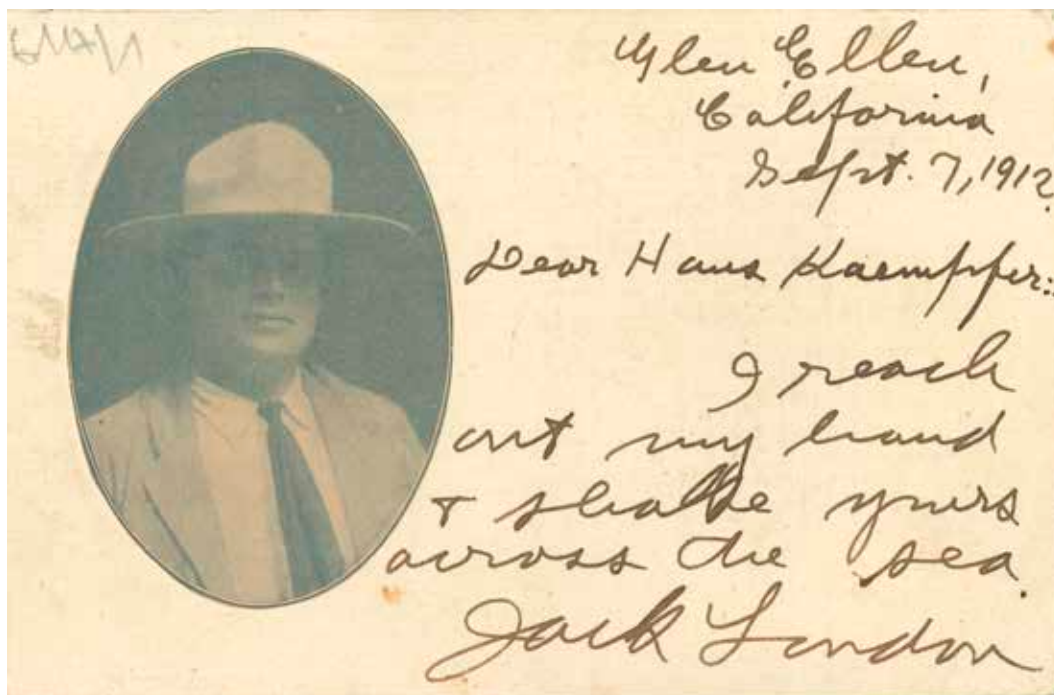 Glen Ellen,
California
Sept. 7, 1912.
Dear Hans Kaempffer:
I reach
out my hand
& shake yours
across the sea.
Jack London